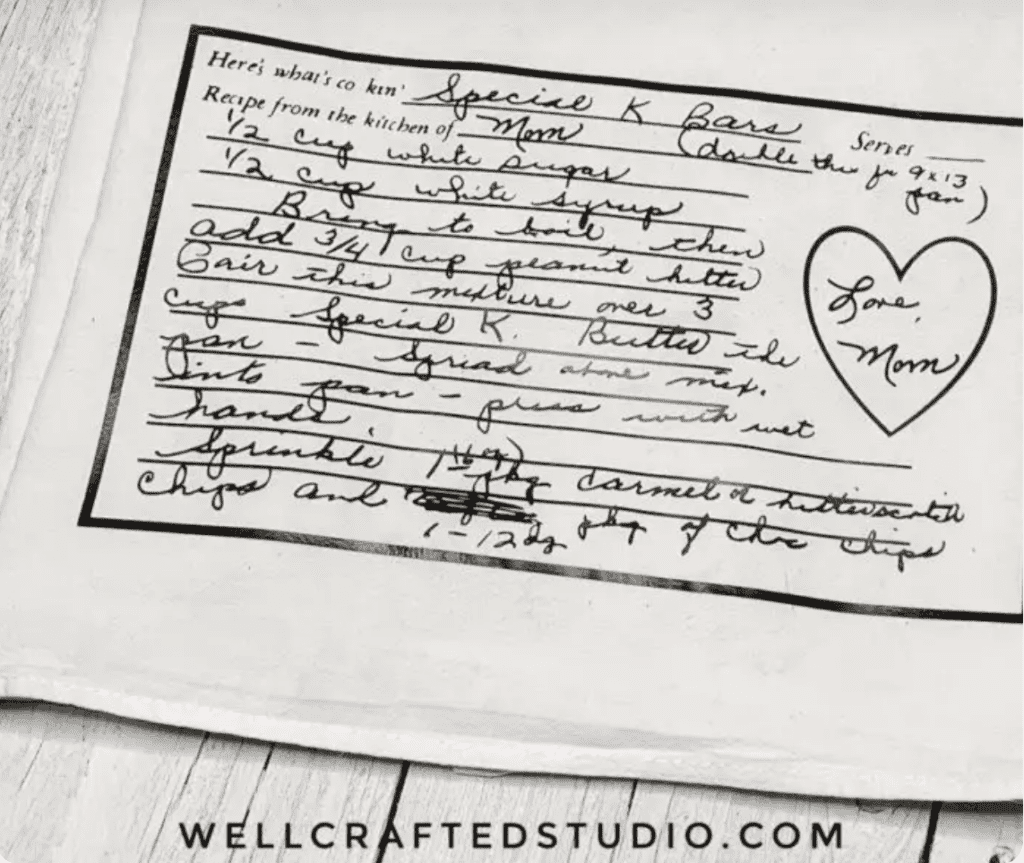 Here's what's co kin' Special K Bars
Recipe from the kitchen of Mom Serves
(double this for 9x13 pan)
1/2 cup white sugar
1/2 cup white syrup
Bring to boil, then
add 3/4 cup peanut butter
Pair this mixture over 3
cups Special K. Butter the
pan - Spread above mix.
into pan - press with wet
hands.
Sprinkle 1 pkg carmel or butterscotch
chips and pkg of choc chips
1 - 12
Love,
Mom
WELLCRAFTEDSTUDIO.COM